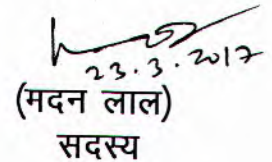 23.3.2017
(मदन लाल)
सदस्य